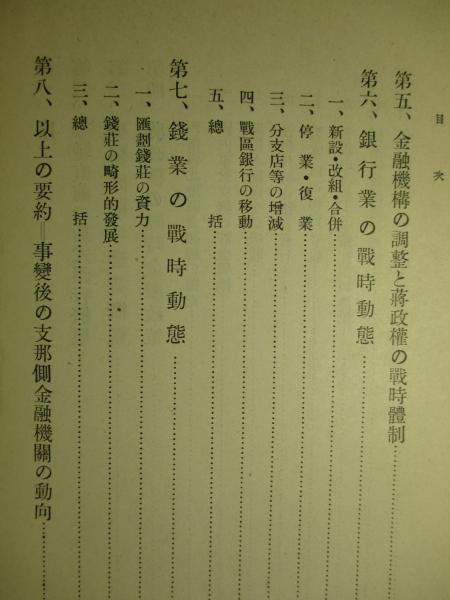 目次
第五、金融機構の調整と蔣政權の戰時體制
第六、銀行業の戰時動態
一、新設・改組・合併
二、停業・復業
三、分支店等の增減
四、戰區銀行の移動
五、總括
第七、錢業の戰時動態
一、匯劃錢莊の資力
二、錢莊の畸形的發展
三、總括
第八、以上の要約＝事變後の支那側金融機關の動向